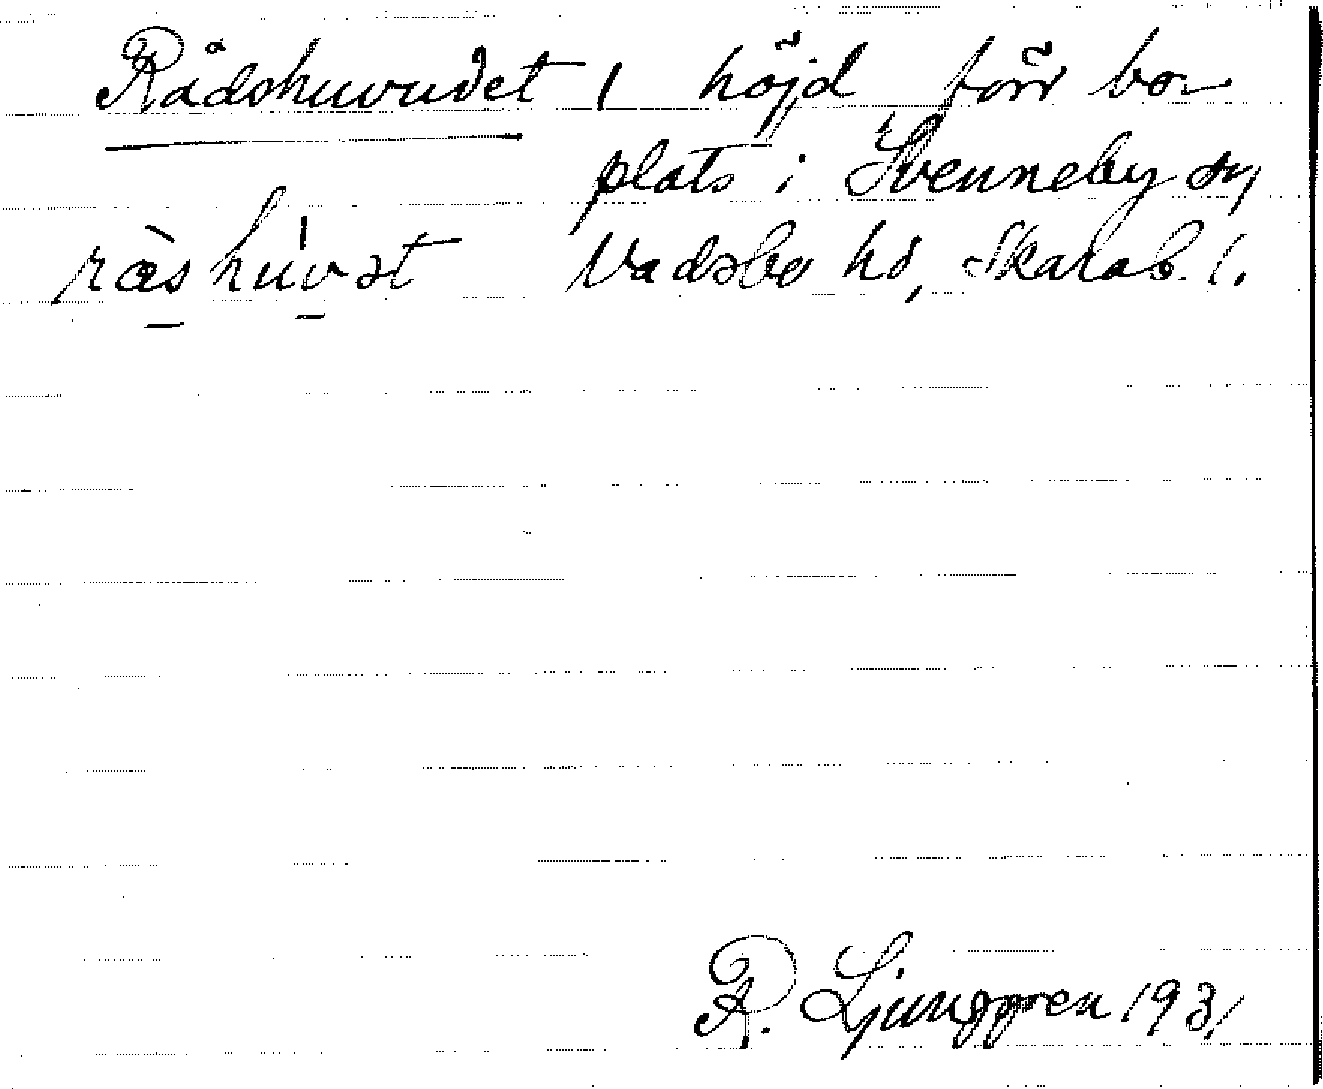 Rådshuvudet, höjd förr bo-
plats i Svenneby sn
Vadsbo hd, Skarab. l.
ràshúvət
R. Ljunggren 1931